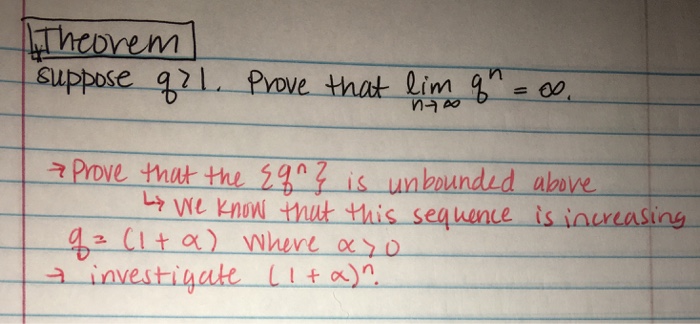 Theorem
suppose q>1. Prove that lim q^n = ∞.
n→∞
→ Prove that the {q^n} is unbounded above
↳ we know that this sequence is increasing
q = (1 + α) where α > 0
→ investigate (1 + α)^n.